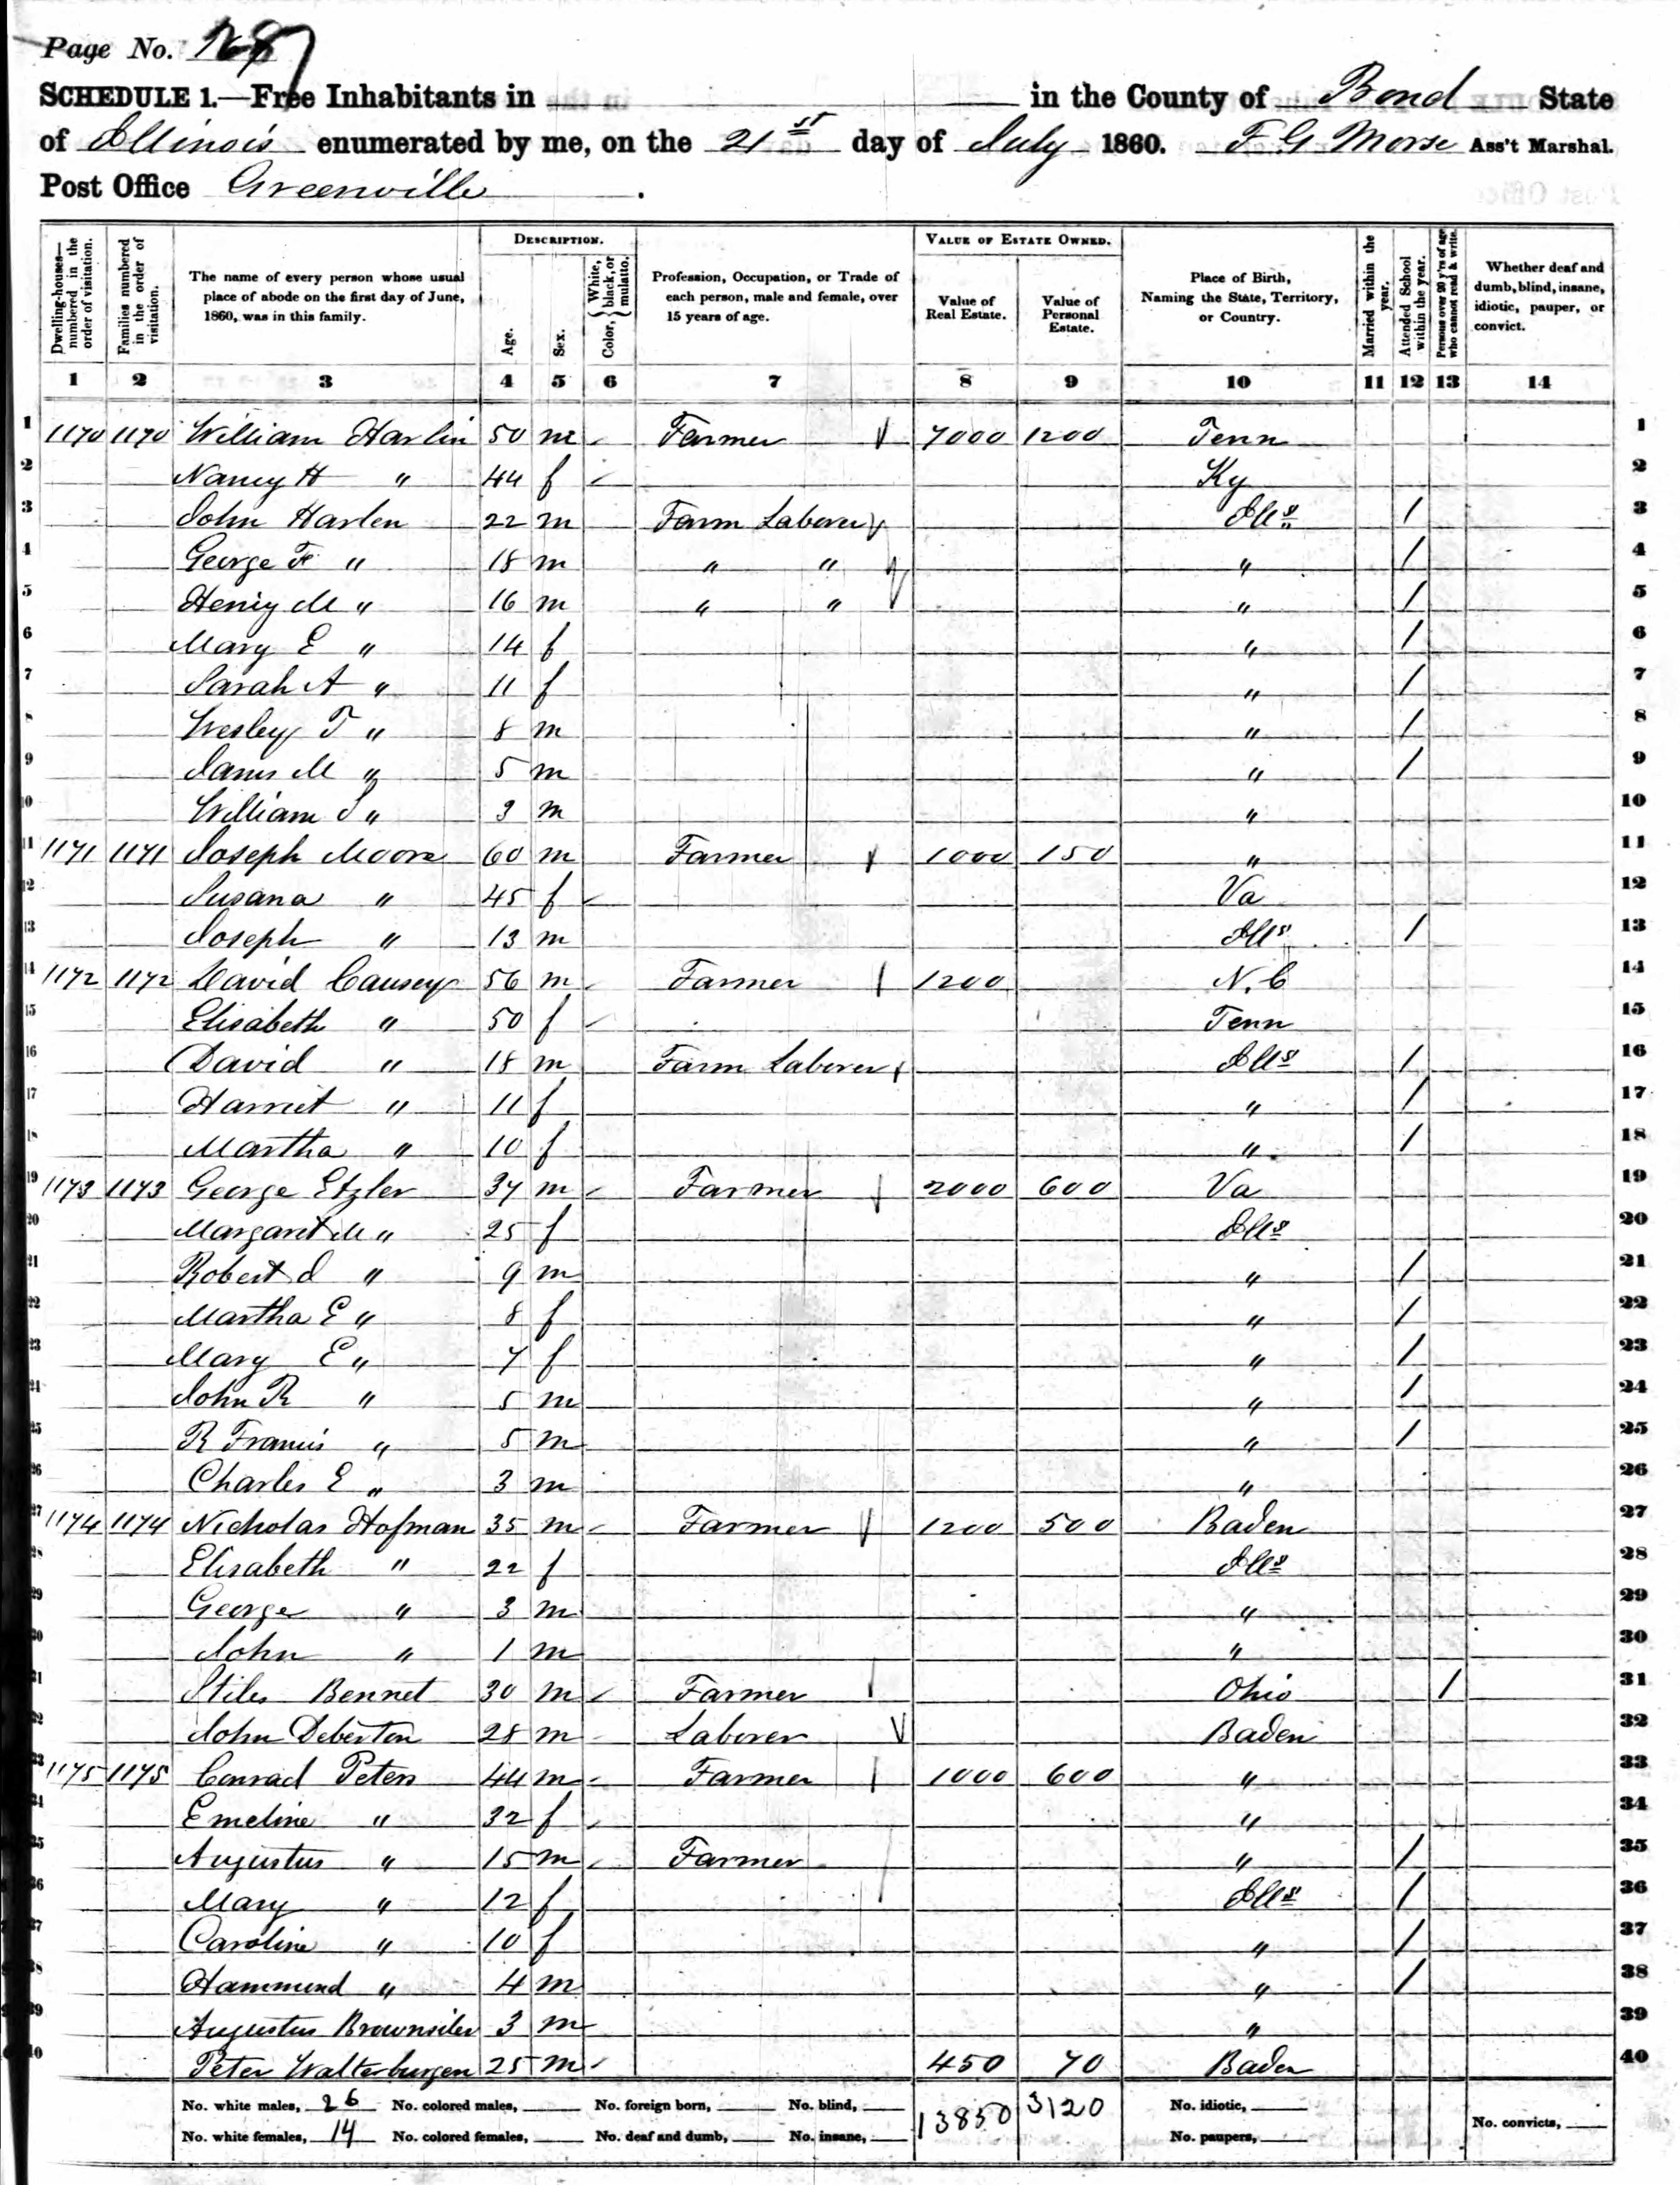 Page No. 187
SCHEDULE 1.—Free Inhabitants in in the County of Bond State
of Illinois enumerated by me, on the 21st day of July 1860. F G Morse Ass't Marshal.
Post Office Greenville.
Dwelling-houses—numbered in the order of visitation. Families numbered in the order of visitation. The name of every person whose usual place of abode on the first day of June, 1860, was in this family. DESCRIPTION. Age. Sex. Color, {White, black, or mulatto. Profession, Occupation, or Trade of each person, male and female, over 15 years of age. VALUE OF ESTATE OWNED. Value of Real Estate. Value of Personal Estate. Place of Birth, Naming the State, Territory, or Country. Married within the year. Attended School within the year. Persons over 20 y'rs of age who cannot read & write. Whether deaf and dumb, blind, insane, idiotic, pauper, or convict.
1 2 3 4 5 6 7 8 9 10 11 12 13 14
1 1170 1170 William Harlin 50 m Farmer 7000 1200 Tenn 1
2 Nancy H " 44 f Ky 2
3 John Harlen 22 m Farm Laborer Ills / 3
4 George F " 18 m " " " / 4
5 Henry M " 16 m " " " / 5
6 Mary E " 14 f " / 6
7 Sarah A " 11 f " / 7
8 Wesley T " 8 m " / 8
9 James M " 5 m " / 9
10 William S " 3 m " 10
11 1171 1171 Joseph Moore 60 m Farmer 1000 150 " 11
12 Susana " 45 f Va 12
13 Joseph " 13 m Ills / 13
14 1172 1172 David Causey 56 m Farmer 1200 N.C 14
15 Elisabeth " 50 f Tenn 15
16 David " 18 m Farm Laborer Ills / 16
17 Harriet " 11 f " / 17
18 Martha " 10 f " / 18
19 1173 1173 George Etzler 37 m Farmer 2000 600 Va 19
20 Margaret M " 25 f Ills 20
21 Robert d " 9 m " / 21
22 Martha E " 8 f " / 22
23 Mary E " 7 f " / 23
24 John R " 5 m " / 24
25 R Francis " 5 m " / 25
26 Charles E " 3 m " 26
27 1174 1174 Nicholas Hofman 35 m Farmer 1200 500 Baden 27
28 Elisabeth " 22 f Ills 28
29 George " 3 m " 29
30 John " 1 m " 30
31 Stiles Bennet 30 m Farmer Ohio / 31
32 John Deberton 28 m Laborer Baden 32
33 1175 1175 Conrad Peters 44 m Farmer 1000 600 " 33
34 Emeline " 32 f " 34
35 Augustus " 15 m Farmer " / 35
36 Mary " 12 f Ills / 36
37 Caroline " 10 f " / 37
38 Hammond " 4 m " / 38
39 Augustus Brownsiler 3 m " 39
40 Peter Walterburgen 25 m 450 70 Baden 40
No. white males, 26 No. colored males, No. foreign born, No. blind, 13850 3120 No. idiotic,
No. white females, 14 No. colored females, No. deaf and dumb, No. insane, No. paupers, No. convicts,